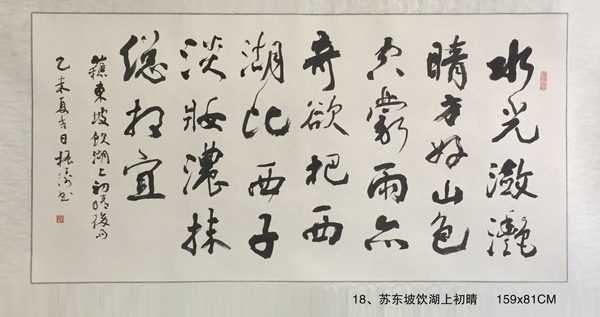 水光瀲灩
晴方好山色
空蒙雨亦
奇欲把西
湖比西子
淡妝濃抹
總相宜
蘇東坡飲湖上初晴後雨
乙未夏吉日
18、苏东坡饮湖上初晴 159x81CM